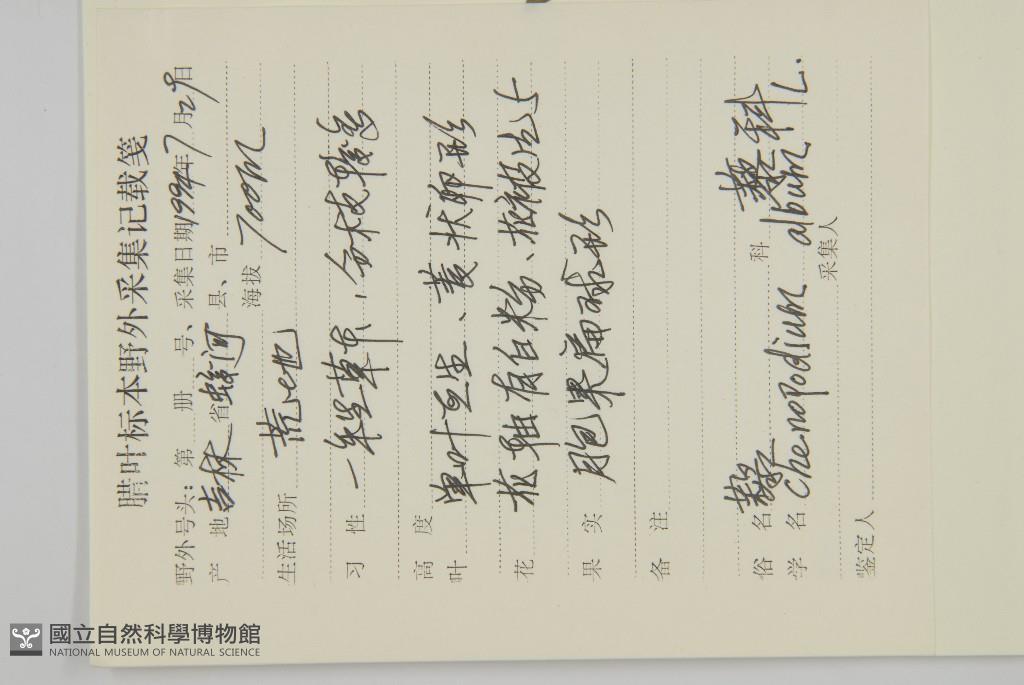 腊叶标本野外采集记载笺
野外号头: 第 册 号、采集日期1994年7月29日
产 地 吉林 省 蛟河 县、市
海拔 700m
生活场所 荒地
习 性 一年生草本、
高 度
叶 单叶互生、菱状卵形
花 花轴有白粉、花被片5
果 实 胞果扁球形
备 注
俗 名 藜 科 藜科
学 名 Chenopodium album L.
采集人
鉴定人
國立自然科學博物館
NATIONAL MUSEUM OF NATURAL SCIENCE